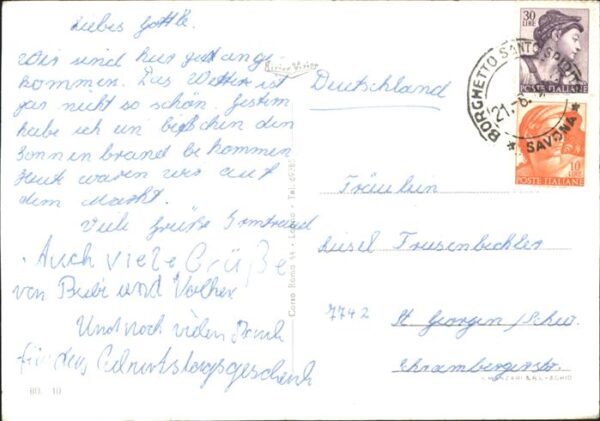 Liebes Gottle.
Wir sind hier gut ange
kommen. Das Wetter ist
gar nicht so schön. Gestern
habe ich ein bißchen den
Sonnenbrand bekommen
Heut waren wir auf
dem Markt.
Viele Grüße Irmtraud
Auch viele Grüße
von Bubi und Volker
Und noch vielen Dank
für das Geburtstagsgeschenk
80. 10
Corso Roma, 44 - Loano - Tel.
Deutschland
Fräulein
Liesel Friesenbichler
7742 St Georgen / Schw.
Schrambergerstr.
30
LIRE
POSTE ITALIANE
10
LIRE
POSTE ITALIANE
BORGHETTO SANTO SPIRITO
21.-8.
* SAVONA *